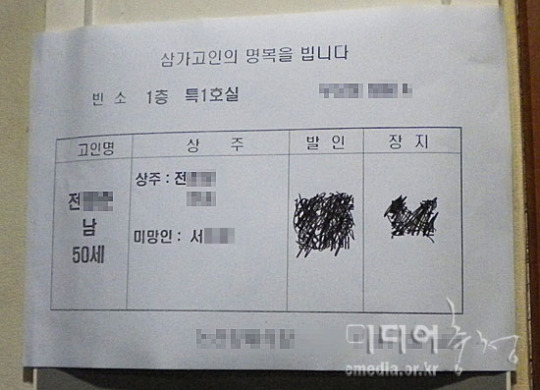 삼가고인의 명복을 빕니다
빈 소 1층 특1호실
고인명 상 주 발 인 장 지
상주 : 전
전
남
미망인 : 서
50세
미디어충청
cmedia.or.kr